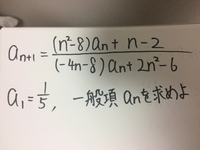 a_{n+1} = \frac{(n^2-8)a_n + n-2}{(-4n-8)a_n + 2n^2-6}
a_1 = \frac{1}{5}, 一般項 a_n を求めよ